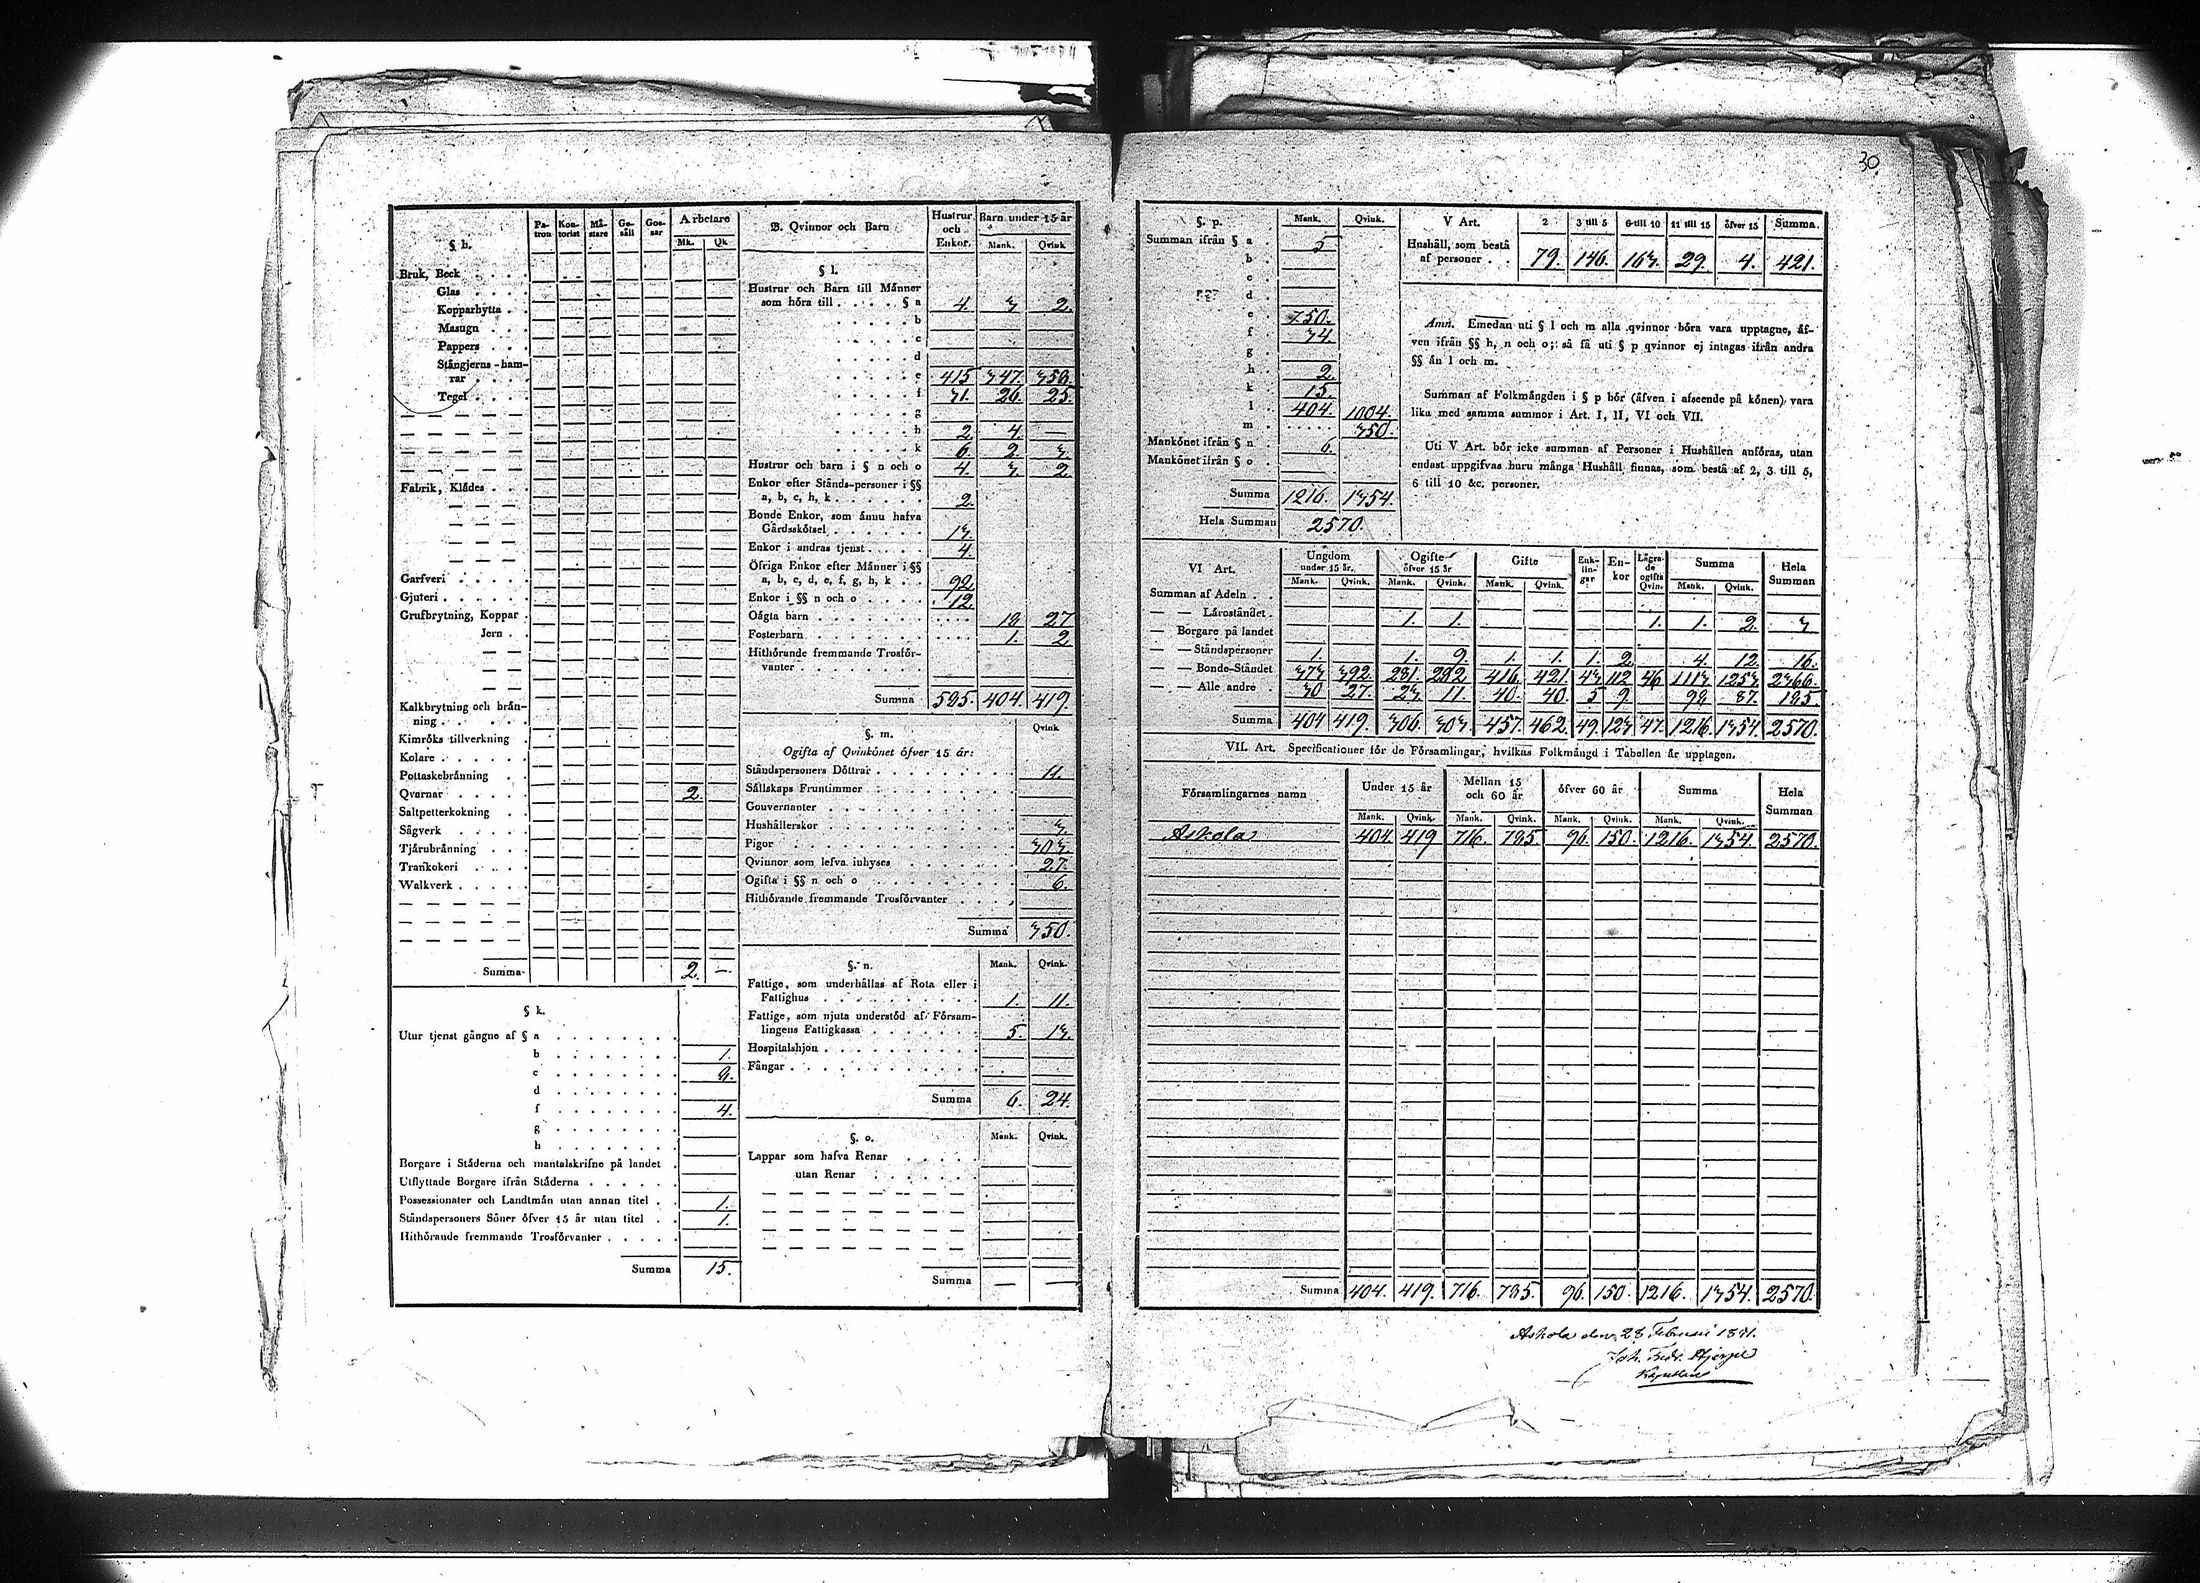 30.
§ h.
Pa-tron
Kon-torist
Må-stare
Ge-säll
Gos-sar
Arbetare
Mk.
Qk
Bruk, Beck
Glas
Kopparhytta
Masugn
Pappers
Stångjerns-ham-
rar
Tegel
Fabrik, Klädes
Garfveri
Gjuteri
Grufbrytning, Koppar
Jern
Kalkbrytning och brån-
ning
Kimröks tillverkning
Kolare
Pottaskebränning
Qvarnar 2.
Saltpetterkokning
Sågverk
Tjärubränning
Trankokeri
Walkverk
Summa 2. —
§ k.
Utur tjenst gångne af § a
b 1.
c 9.
d
f 4.
g
h
Borgare i Städerna och mantalskrifne på landet
Utflyttade Borgare ifrån Städerna
Possessionater och Landtmän utan annan titel 1.
Ståndspersoners Söner öfver 15 år utan titel 1.
Hithörande fremmande Trosförvanter
Summa 15.
B. Qvinnor och Barn
Hustrur och Enkor.
Barn under 15 år
Mank. Qvink
§ l.
Hustrur och Barn till Männer
som höra till § a 4. 3 2.
b
c
d
e 415 347. 358.
f 31. 26. 25.
g
h 2. 4. —
k 6 2. 3.
Hustrur och barn i § n och o 4. 3. 2
Enkor efter Stånds-personer i §§
a, b, c, h, k 2.
Bonde Enkor, som ännu hafva
Gårdsskötsel 13.
Enkor i andras tjenst 4.
Öfriga Enkor efter Männer i §§
a, b, c, d, e, f, g, h, k 92.
Enkor i §§ n och o 12.
Oägta barn 18 27
Fosterbarn 1. 2
Hithörande fremmande Trosför-
vanter
Summa 585. 404. 419.
§. m.
Qvink
Ogifta af Qvinkönet öfver 15 år:
Ståndspersoners Döttrar 11.
Sällskaps Fruntimmer
Gouvernanter
Hushållerskor 3.
Pigor 303.
Qvinnor som lefva inhyses 27.
Ogifta i §§ n och o 6.
Hithörande fremmande Trosförvanter
Summa 350.
§. n. Mank. Qvink.
Fattige, som underhållas af Rota eller i
Fattighus 1. 11.
Fattige, som njuta understöd af Försam-
lingens Fattigkassa 5. 13.
Hospitalshjon
Fångar
Summa 6. 24.
§. o. Mank. Qvink.
Lappar som hafva Renar
utan Renar
Summa — —
§. p. Mank. Qvink.
Summan ifrån § a 5
b
c
d
e 750.
f 34
g
h 2.
k 15.
l 404. 1004.
m 350.
Mankönet ifrån § n 6.
Mankönet ifrån § o
Summa 1216. 1354.
Hela Summan 2570.
V Art. 2 3 till 5 6 till 10 11 till 15 öfver 15 Summa.
Hushåll, som bestå
af personer 79. 146. 163. 29. 4. 421.
Anm. Emedan uti § l och m alla qvinnor böra vara upptagne, äf-
ven ifrån §§ h, n och o; så få uti § p qvinnor ej intagas ifrån andra
§§ än l och m.
Summan af Folkmängden i § p bör (äfven i afseende på könen) vara
lika med samma summor i Art. I, II, VI och VII.
Uti V Art. bör icke summan af Personer i Hushållen anföras, utan
endast uppgifvas huru många Hushåll finnas, som bestå af 2, 3 till 5,
6 till 10 &c. personer.
VI Art.
Ungdom under 15 år.
Ogifte öfver 15 år
Gifte
Enk-lin-gar
En-kor
Lägra-de ogifta Qvin.
Summa
Hela Summan
Mank. Qvink. Mank. Qvink. Mank. Qvink. Mank. Qvink.
Summan af Adeln
— — Läroståndet 1. 1. 1. 1. 2. 3
— Borgare på landet
— — Ståndspersoner 1. 1. 9. 1. 1. 1. 2. 4. 12. 16.
— — Bonde-Ståndet 373 392. 281. 282. 416. 421. 43 112 46 1113 1253. 2366.
— — Alle andre 30 27. 23. 11. 40. 40. 5 9. 98. 87. 185.
Summa 404 419. 306. 303. 457. 462. 49. 123 47. 1216. 1354. 2570.
VII. Art. Specificationer för de Församlingar, hvilkas Folkmängd i Tabellen är upptagen.
Församlingarnes namn
Under 15 år
Mellan 15 och 60 år
öfver 60 år
Summa
Hela Summan
Mank. Qvink. Mank. Qvink. Mank. Qvink. Mank. Qvink.
Askola 404. 419 716. 785. 96. 150. 1216. 1354. 2570.
Summa 404. 419. 716. 785. 96. 150. 1216. 1354. 2570.
Askola den 28 Februari 1831.
Joh. Fredr.